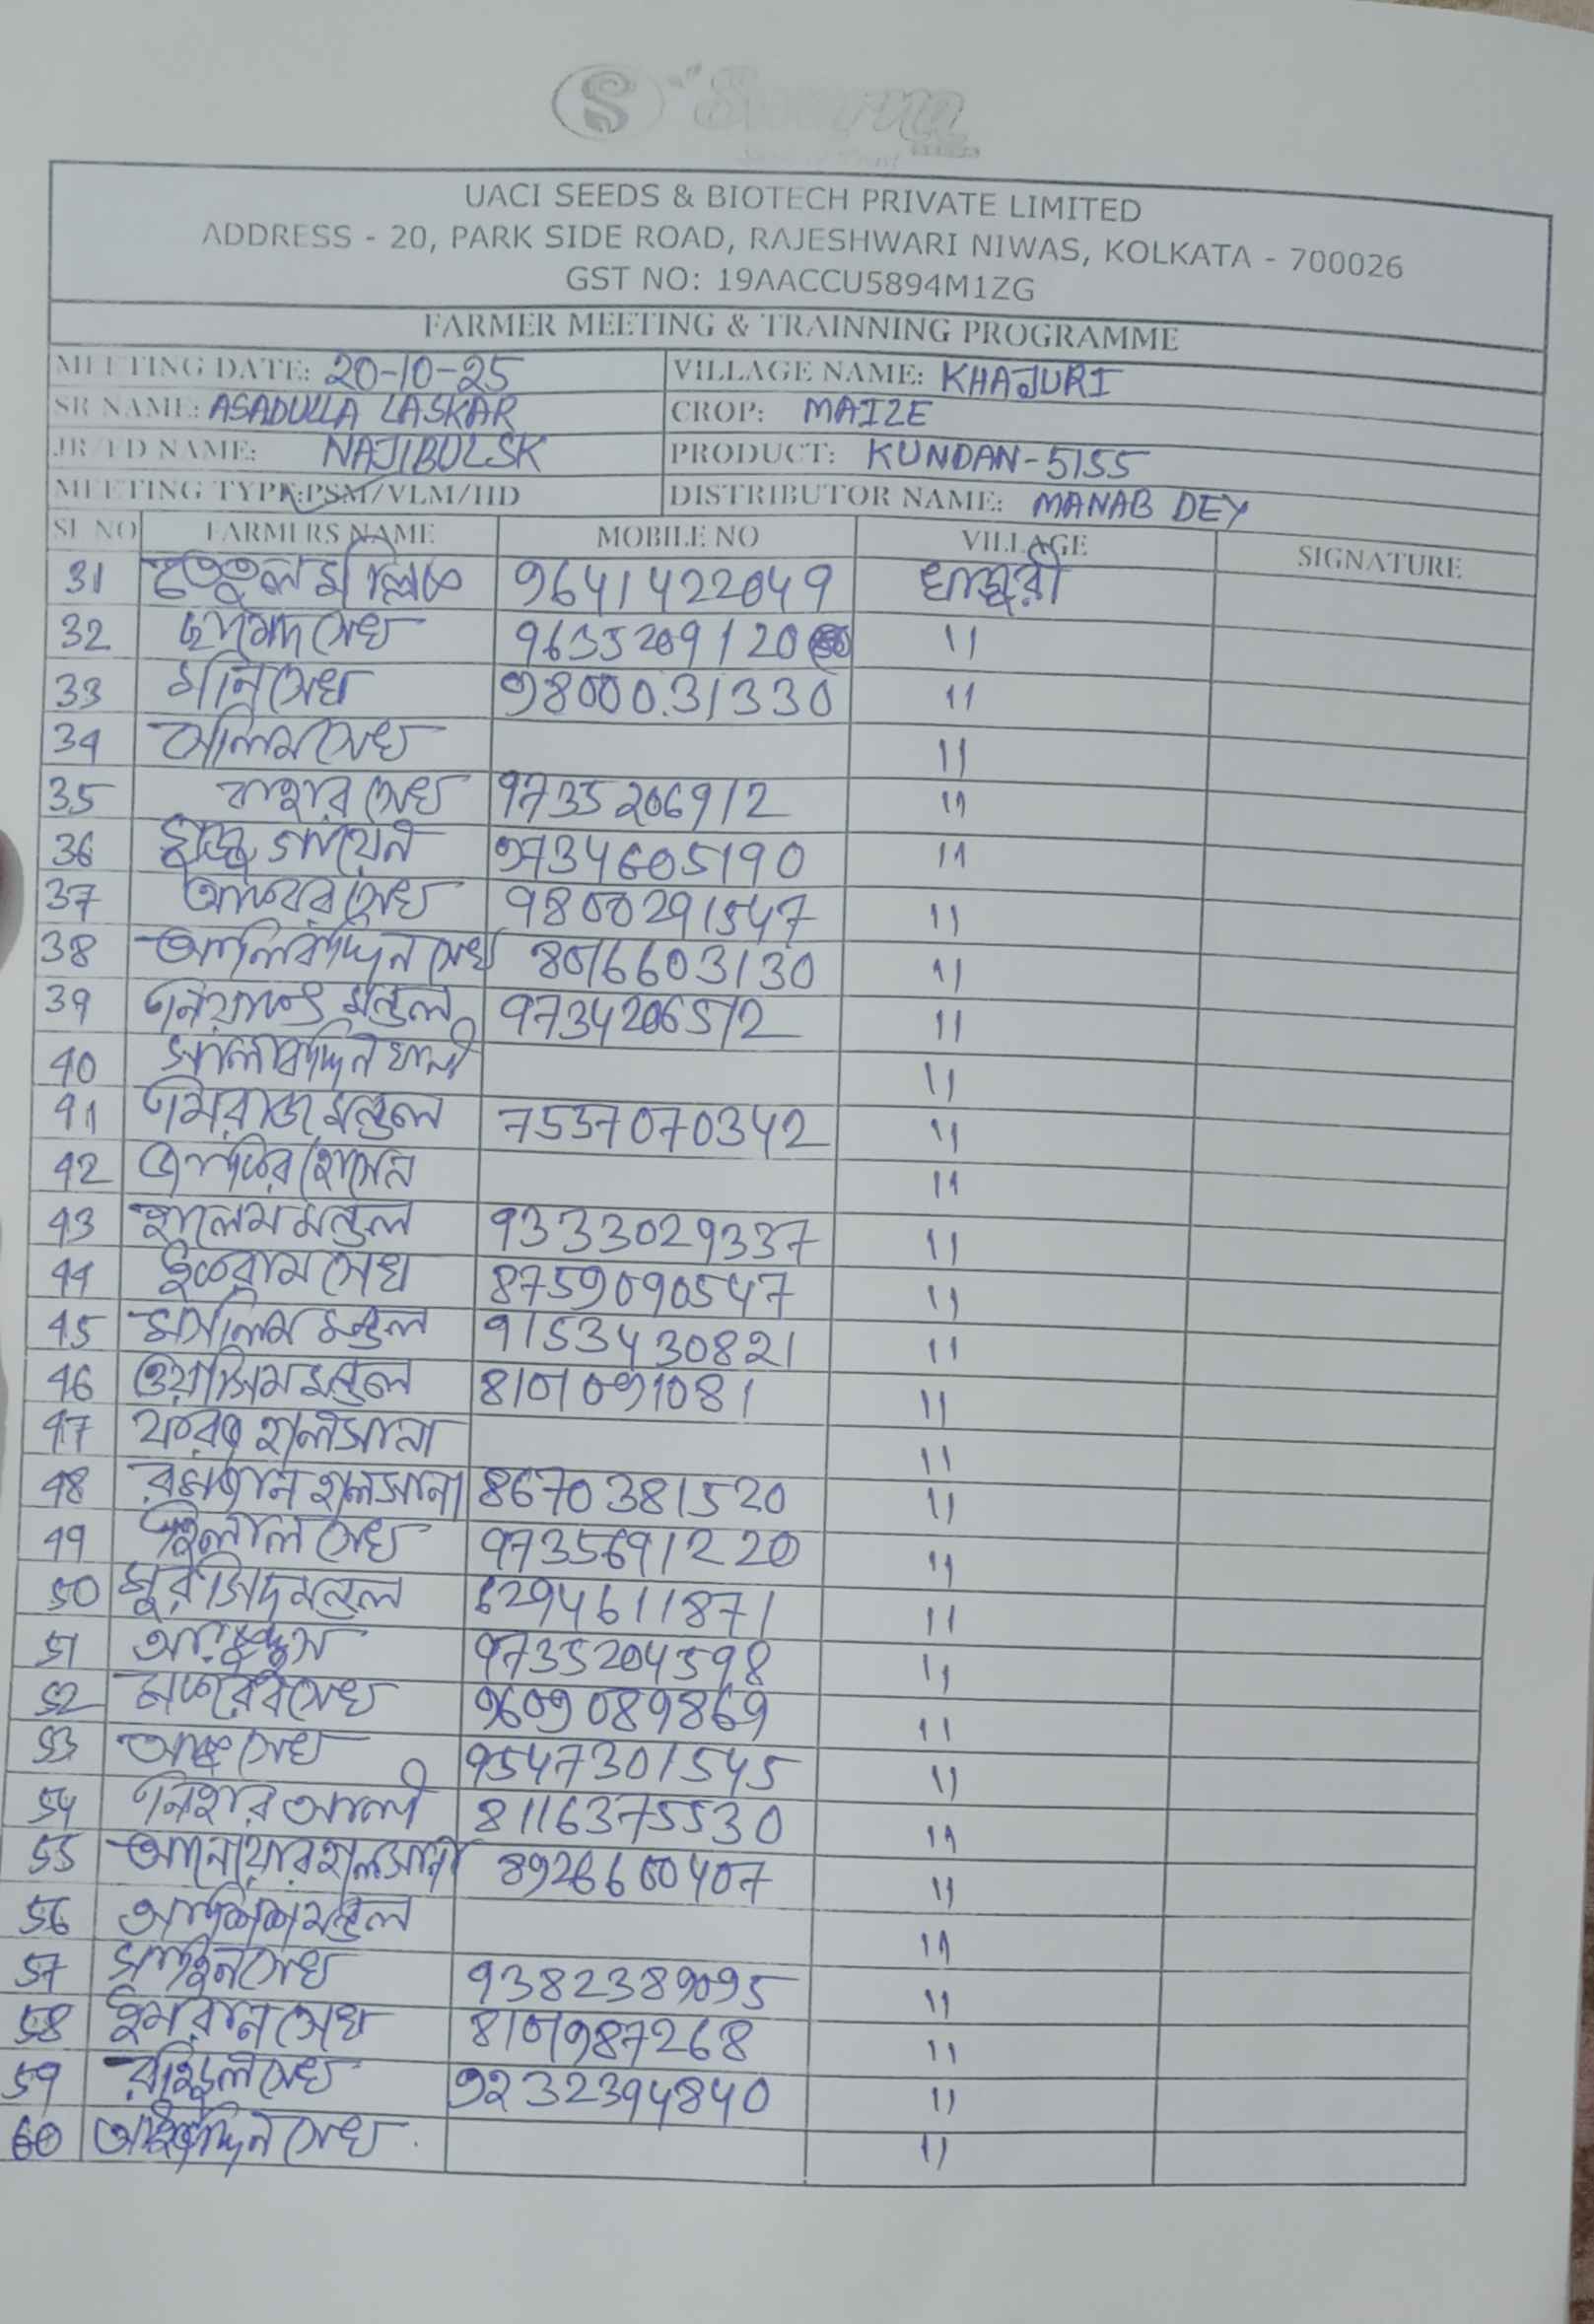 S Swarna
UACI SEEDS & BIOTECH PRIVATE LIMITED
ADDRESS - 20, PARK SIDE ROAD, RAJESHWARI NIWAS, KOLKATA - 700026
GST NO: 19AACCU5894M1ZG
FARMER MEETING & TRAINNING PROGRAMME
MEETING DATE: 20-10-25 VILLAGE NAME: KHAJURI
SR NAME: ASADULLA LASKAR CROP: MAIZE
JR/FD NAME: NAJIBUL SK PRODUCT: KUNDAN-5155
MEETING TYPE: PSM/VLM/HD DISTRIBUTOR NAME: MANAB DEY
SL NO FARMERS NAME MOBILE NO VILLAGE SIGNATURE
31 মল্লিক 9641422049 খাজুরী
32 সেখ 9635209120 11
33 মনি সেখ 9800031330 11
34 সেখ 11
35 বাহার সেখ 9735206912 11
36 গায়েন 9734605190 11
37 আকবর সেখ 9800291547 11
38 আলিবদ্দিন সেখ 8016603130 11
39 মন্ডল 9734206512 11
40 11
41 মিরাজ মন্ডল 7537070342 11
42 হোসেন 11
43 হালেম মন্ডল 9333029337 11
44 ইকরাম সেখ 8759090547 11
45 মসলিম মন্ডল 9153430821 11
46 ওয়াসিম মন্ডল 8101091081 11
47 হালসানা 11
48 রমজান হালসানা 8670381520 11
49 হিলাল সেখ 9735691220 11
50 মুরসিদ মন্ডল 6294611871 11
51 9735204598 11
52 সেখ 9609089869 11
53 সেখ 9547301545 11
54 নিহার আলী 8116375530 11
55 আনোয়ার হালসানা 8926600407 11
56 মন্ডল 11
57 সেখ 9382389095 11
58 ইমরান সেখ 8101987268 11
59 সেখ 9232394840 11
60 সেখ 11